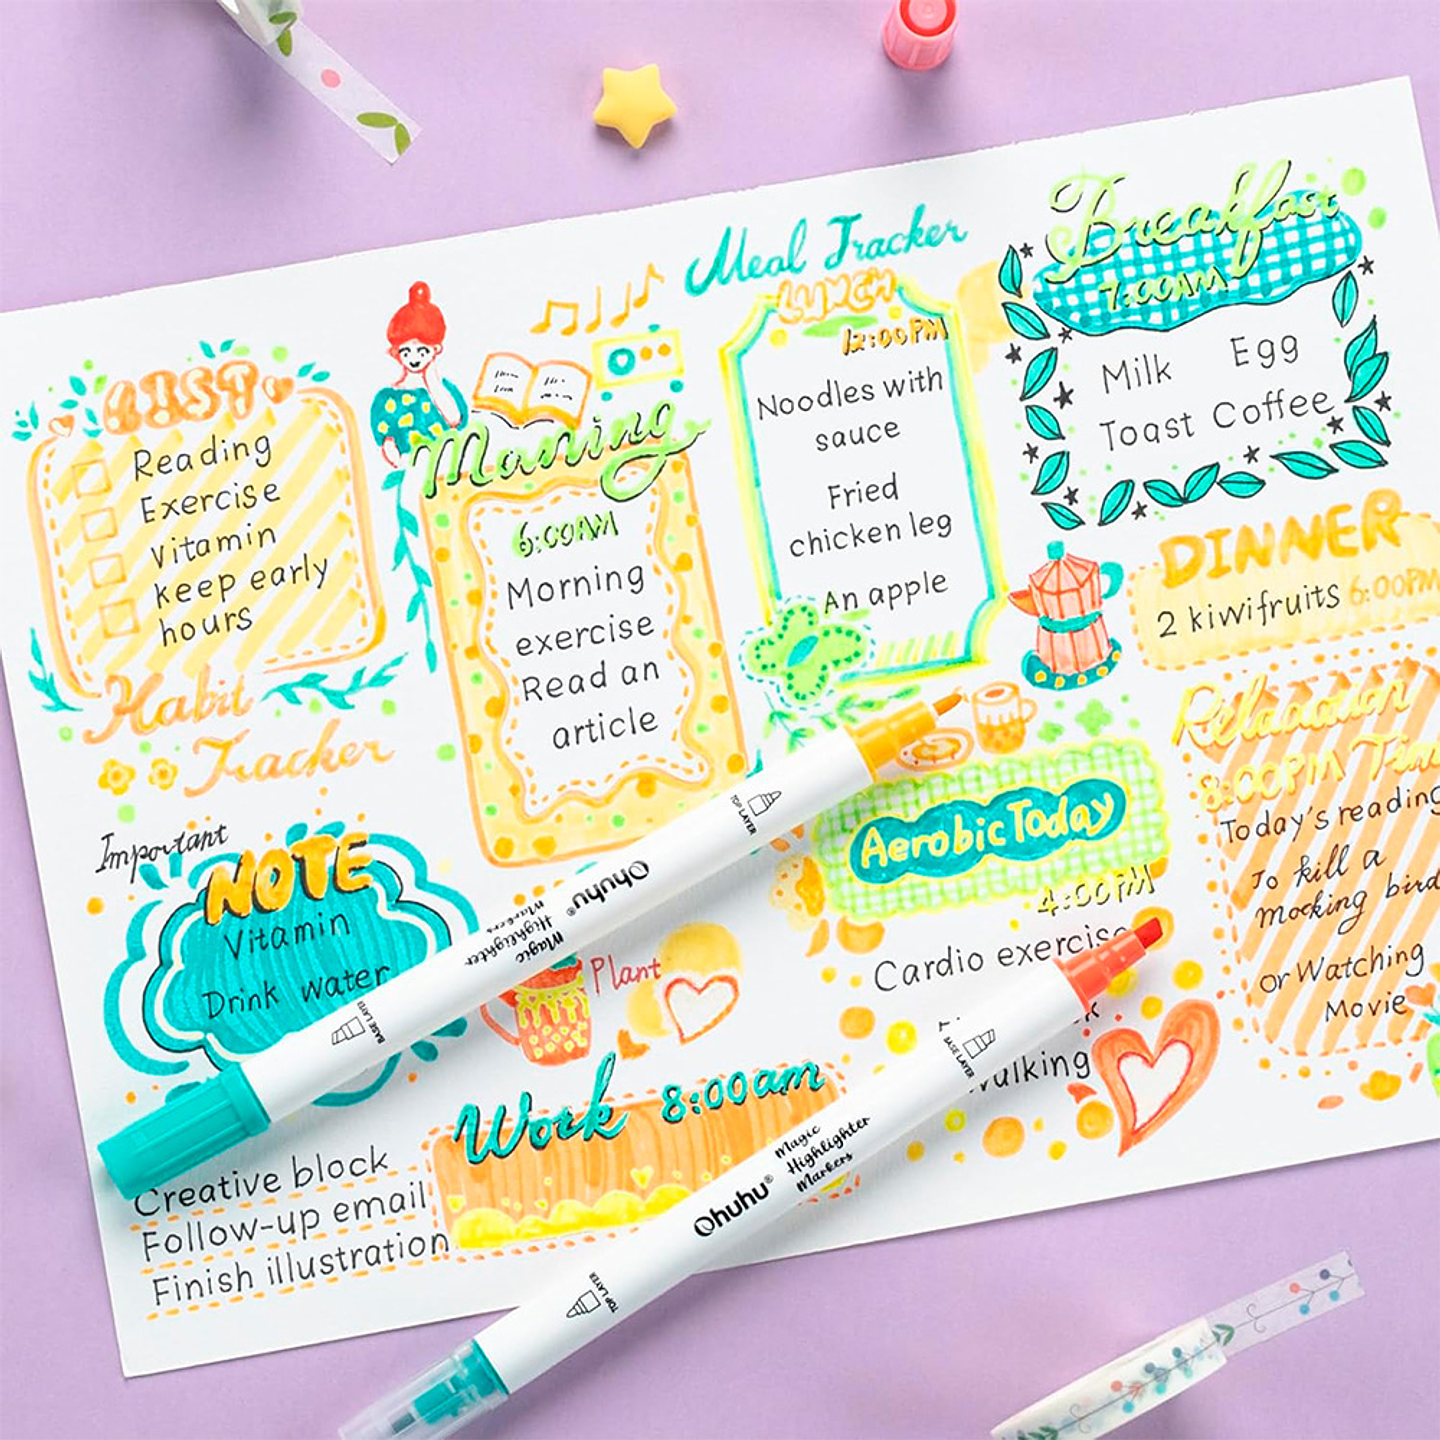 Meal Tracker
Breakfast
7:00AM
Milk Egg
Toast Coffee
LUNCH
12:00PM
Noodles with
sauce
Fried
chicken leg
An apple
LIST
Reading
Exercise
Vitamin
keep early
hours
Habit
Tracker
Morning
6:00AM
Morning
exercise
Read an
article
DINNER
2 kiwifruits 6:00PM
Relaxation
8:00PM
Today's reading
To kill a
mocking bird
or Watching
Movie
Aerobic Today
4:00PM
Cardio exercise
Walking
Important
NOTE
Vitamin
Drink water
Plant
Work 8:00am
Creative block
Follow-up email
Finish illustration
TOP LAYER
Ohuhu®
Magic
Highlighter
Markers
BASE LAYER
BASE LAYER
Magic
Highlighter
Markers
Ohuhu®
TOP LAYER